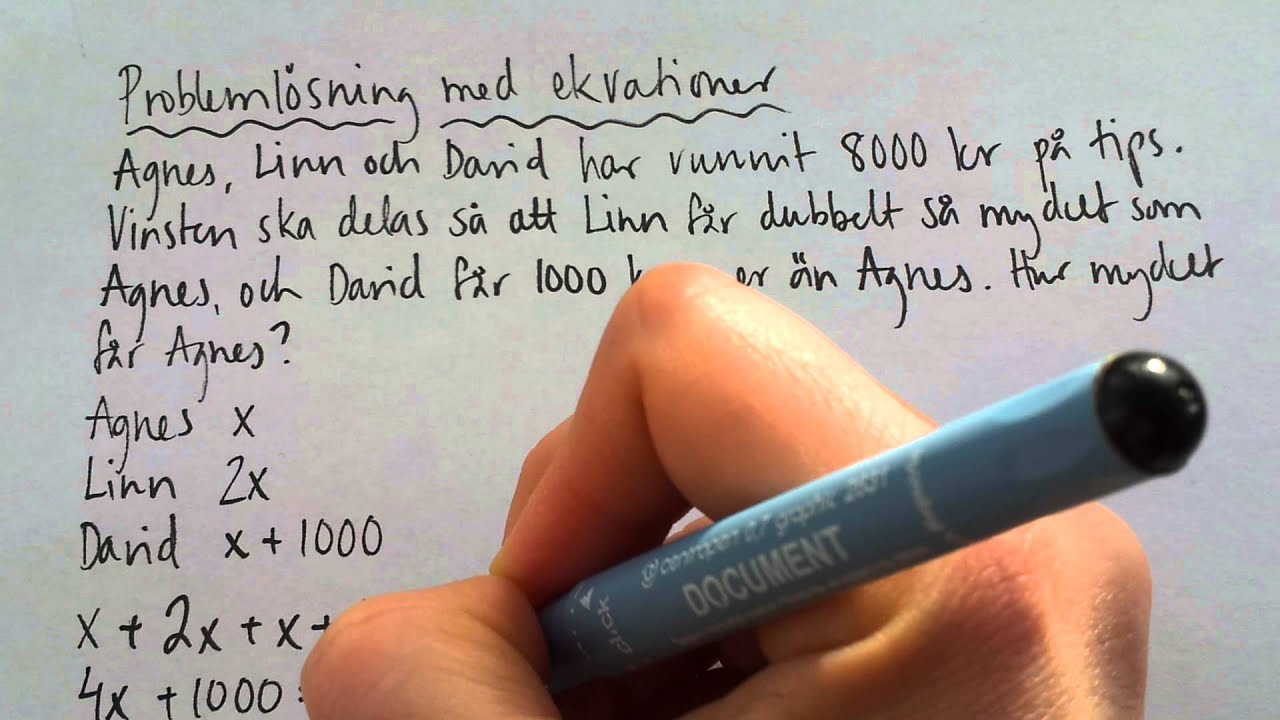 Problemlösning med ekvationer
Agnes, Linn och David har vunnit 8000 kr på tips.
Vinsten ska delas så att Linn får dubbelt så mycket som
Agnes, och David får 1000 än Agnes. Hur mycket
får Agnes?
Agnes x
Linn 2x
David x + 1000
x + 2x + x +
4x + 1000 =
DOCUMENT
click